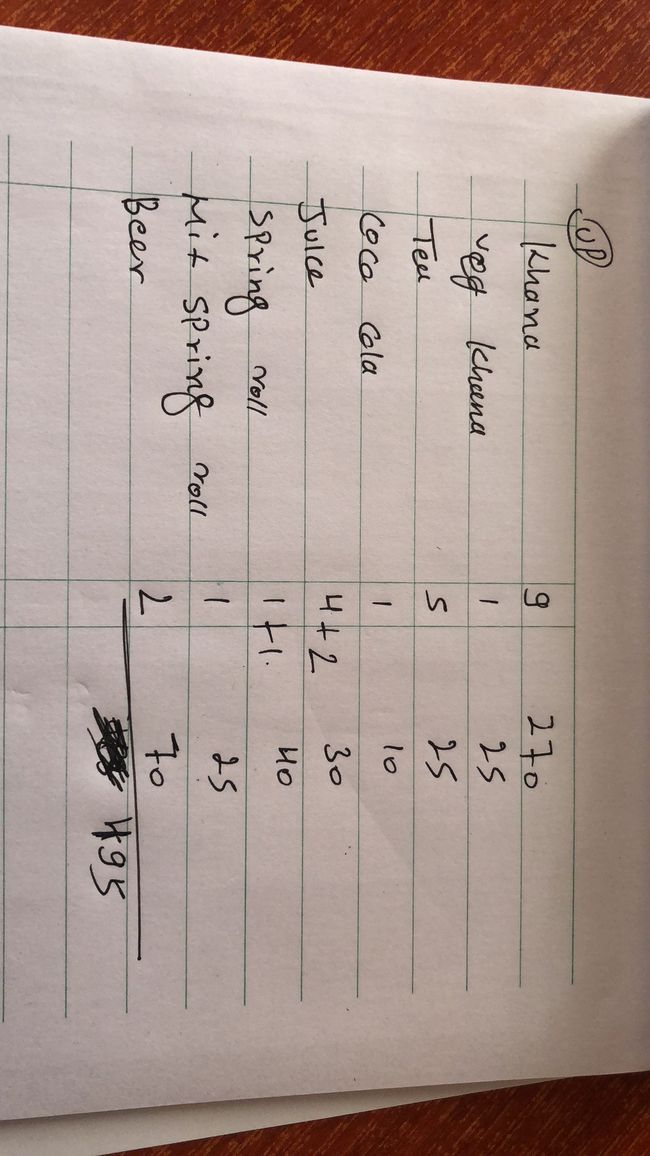 UP
Khana 9 270
veg khana 1 25
Tea 5 25
Coca cola 1 10
Juice 4+2 30
Spring roll 1+1. 40
Mit spring roll 1 25
Beer 2 70
495